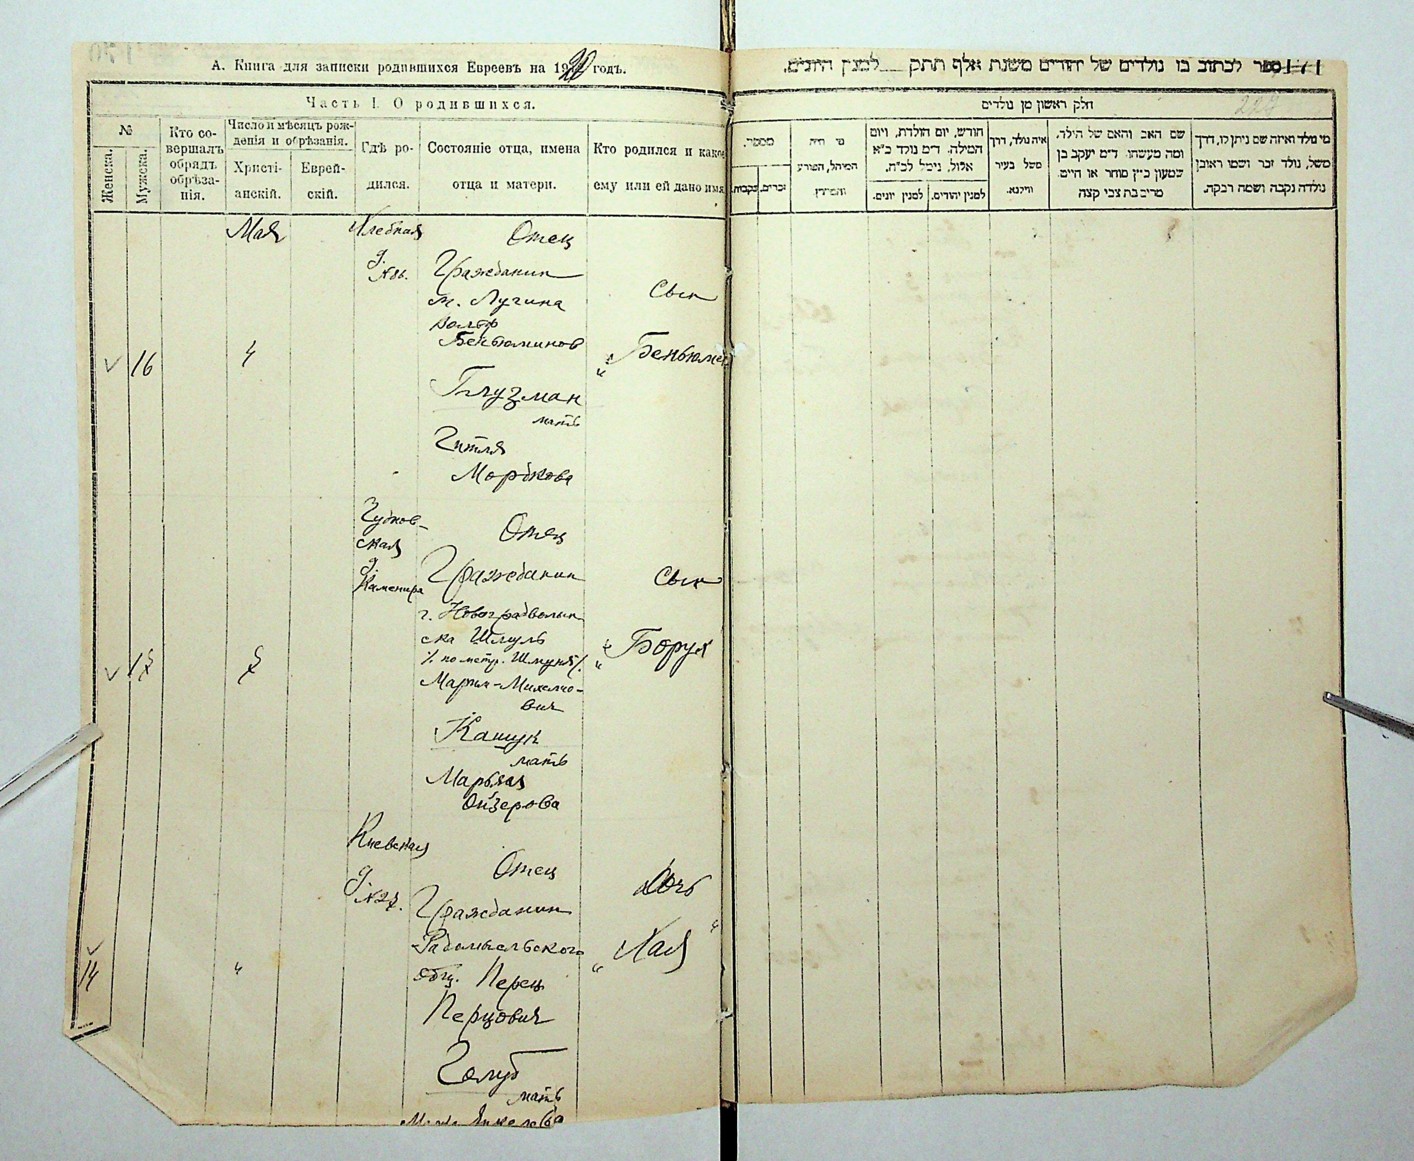 А. Книга для записки родившихся Евреевъ на 1920 годъ.
Часть I. О родившихся.
№
Женска.
Мужска.
Кто со-
вершалъ
обрядъ
обрѣза-
нія.
Число и мѣсяцъ рож-
денія и обрѣзанія.
Христі-
анскій.
Еврей-
скій.
Гдѣ ро-
дился.
Состояніе отца, имена
отца и матери.
Кто родился и какое
ему или ей дано имя
Мая
Хлебная
Отец
Гражданин
м. Лугина
Сын
Беньюминов
16
4
„ Беньюмен
Глузман
мать
Гитля
Мордкова
Чуднов-
ская
д.
Отец
Гражданин
Сын
г. Новоградволын
ска Шмуль
„ Борух
Кашук
мать
Марьям
Ойзерова
Киевская
д. №27.
Отец
Гражданин
Дочь
Радомысльского
общ. Перец
„ Хая „
14
„
Перцович
Голуб
мать
171
ספר לכתוב בו נולדים של יהודים משנת אלף תתק למנין היונים.
228
חלק ראשון מן נולדים
מספר.
זכרים.
נקבות.
מי היה
המוהל, הפורע
והמוצץ
חודש, יום הולדת, ויום
המילה. ד״מ נולד כ״א
אלול, נימל לכ״ח.
למנין יהודים.
למנין יונים.
איה נולד, דרך
משל בעיר
ווילנא.
שם האב והאם של הילד.
ומה מעשהו. ד״מ יעקב בן
שמעון כ״ץ סוחר או חייט.
מרים בת צבי קצת
מי נולד ואיזה שם ניתן לו, דרך
משל, נולד זכר ושמו ראובן
נולדה נקבה ושמה רבקה.